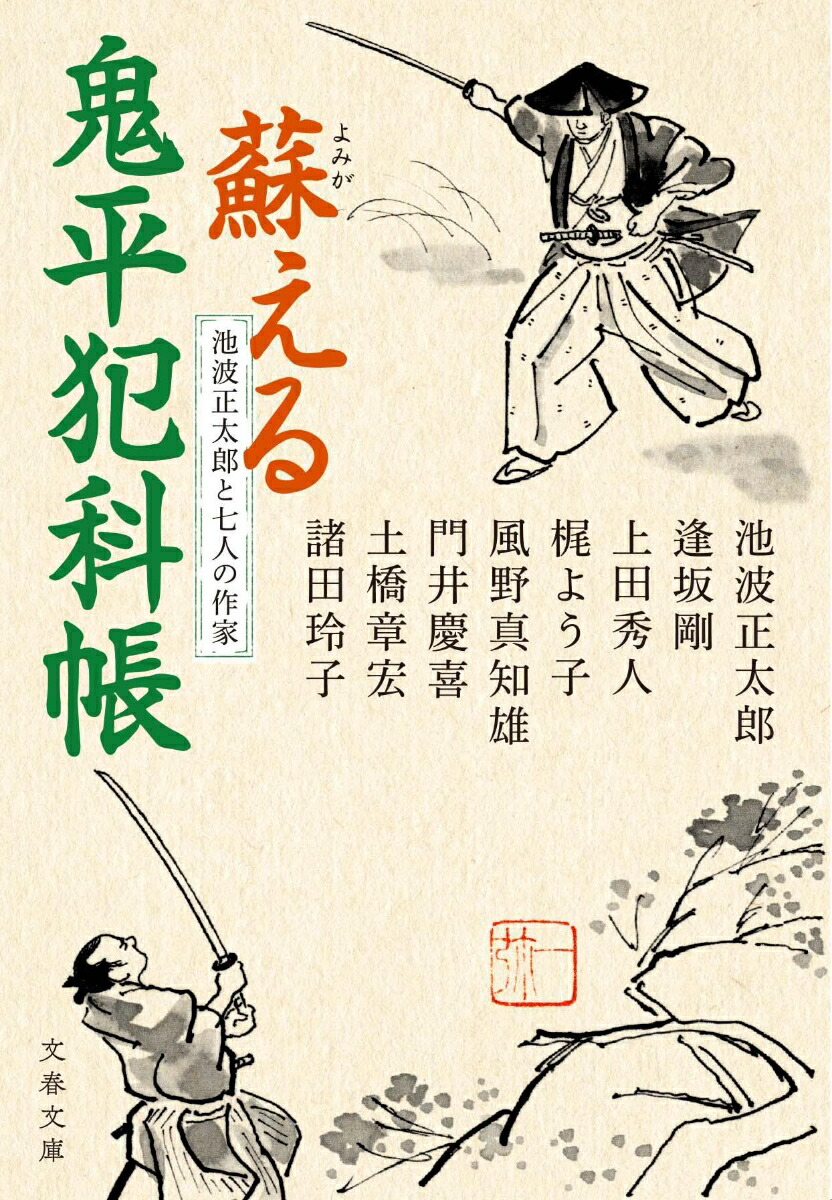 蘇える
よみが
鬼平犯科帳
池波正太郎と七人の作家
池波正太郎
逢坂剛
上田秀人
梶よう子
風野真知雄
門井慶喜
土橋章宏
諸田玲子
文春文庫